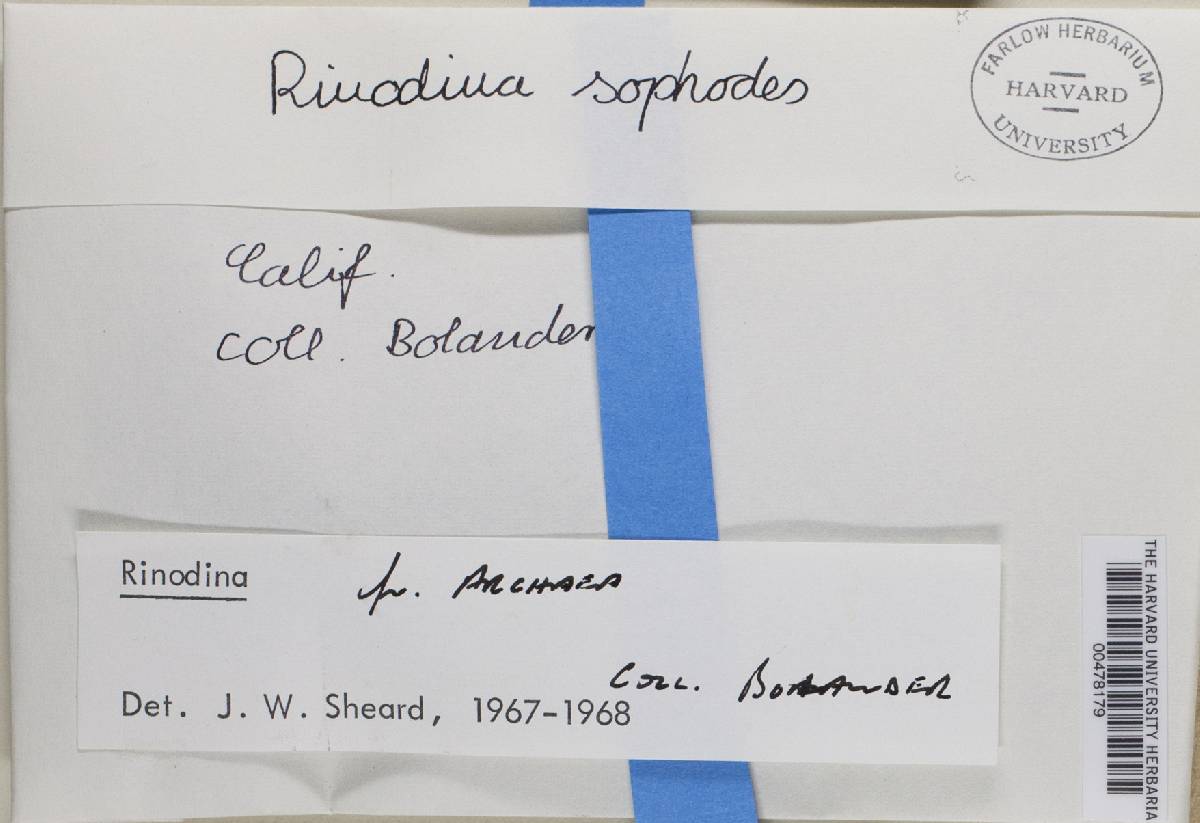 Rinodina sophodes
FARLOW HERBARIUM
HARVARD
UNIVERSITY
Calif.
Coll. Bolander
Rinodina ARCHAEA
COLL. BOLANDER
Det. J. W. Sheard, 1967-1968
THE HARVARD UNIVERSITY HERBARIA
00478179